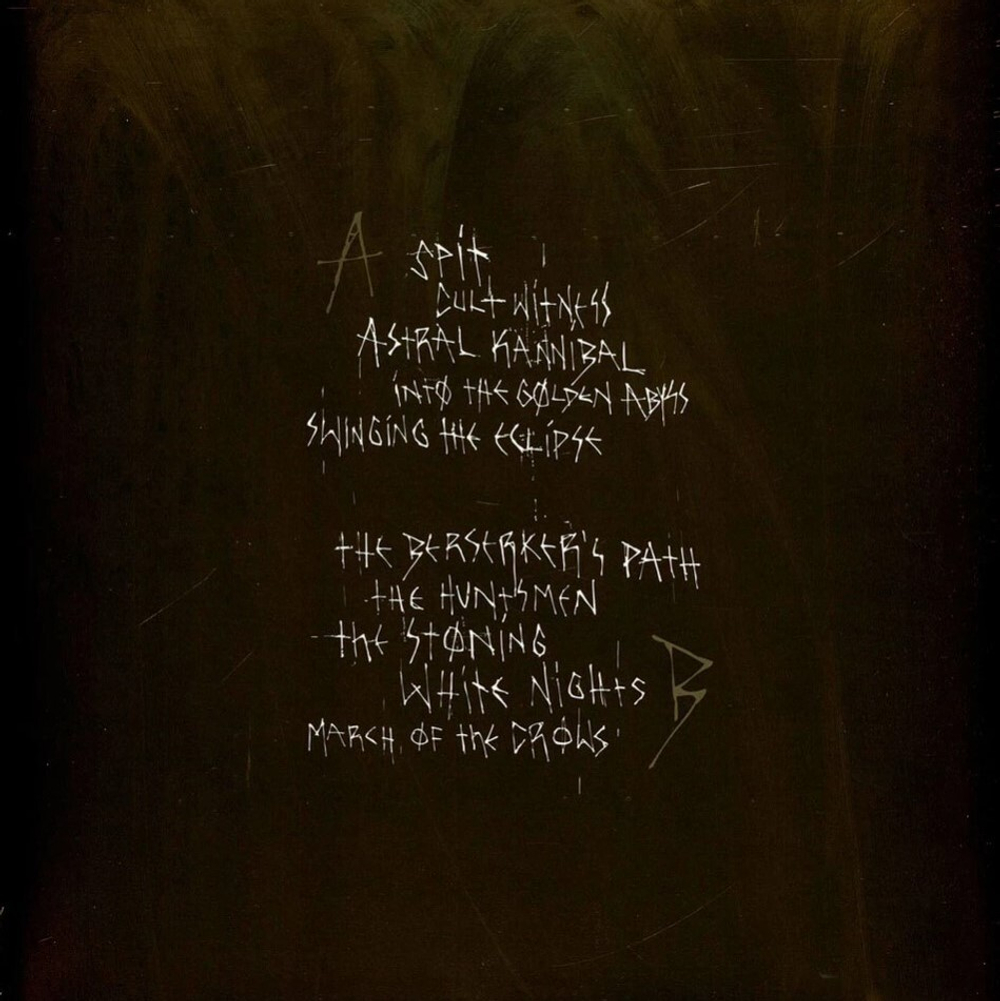 A
SPIT
CULT WITNESS
ASTRAL KANNIBAL
INTØ THE GØLDEN ABYSS
SWINGING THE ECLIPSE
THE BERSERKER'S PATH
THE HUNTSMEN
THE STØNING
WHITE NIGHTS
B
MARCH ØF THE CRØWS